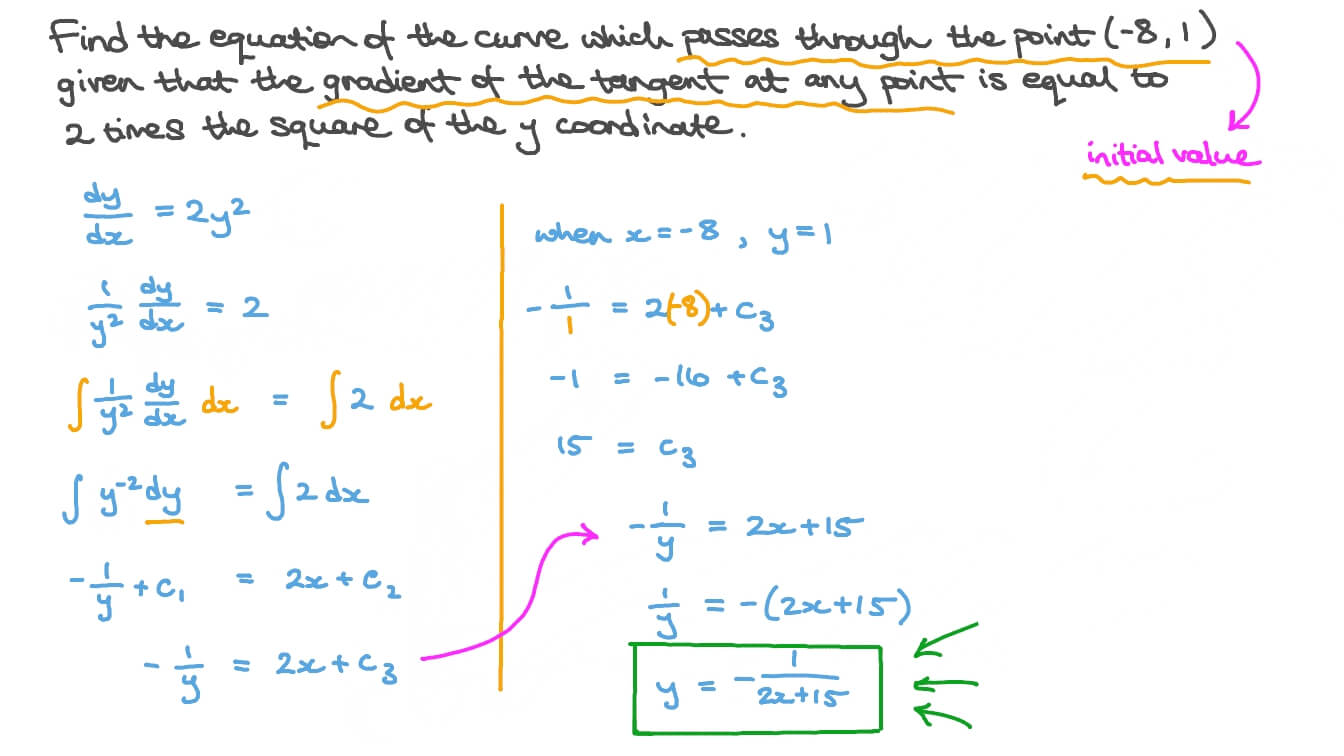 Find the equation of the curve which passes through the point (-8, 1)
given that the gradient of the tangent at any point is equal to
2 times the square of the y coordinate.
initial value
dy/dx = 2y²
1/y² dy/dx = 2
∫ 1/y² dy/dx dx = ∫ 2 dx
∫ y⁻² dy = ∫ 2 dx
-1/y + C₁ = 2x + C₂
-1/y = 2x + C₃
when x = -8 , y = 1
-1/1 = 2(-8) + C₃
-1 = -16 + C₃
15 = C₃
-1/y = 2x + 15
1/y = -(2x + 15)
y = -1/(2x+15)